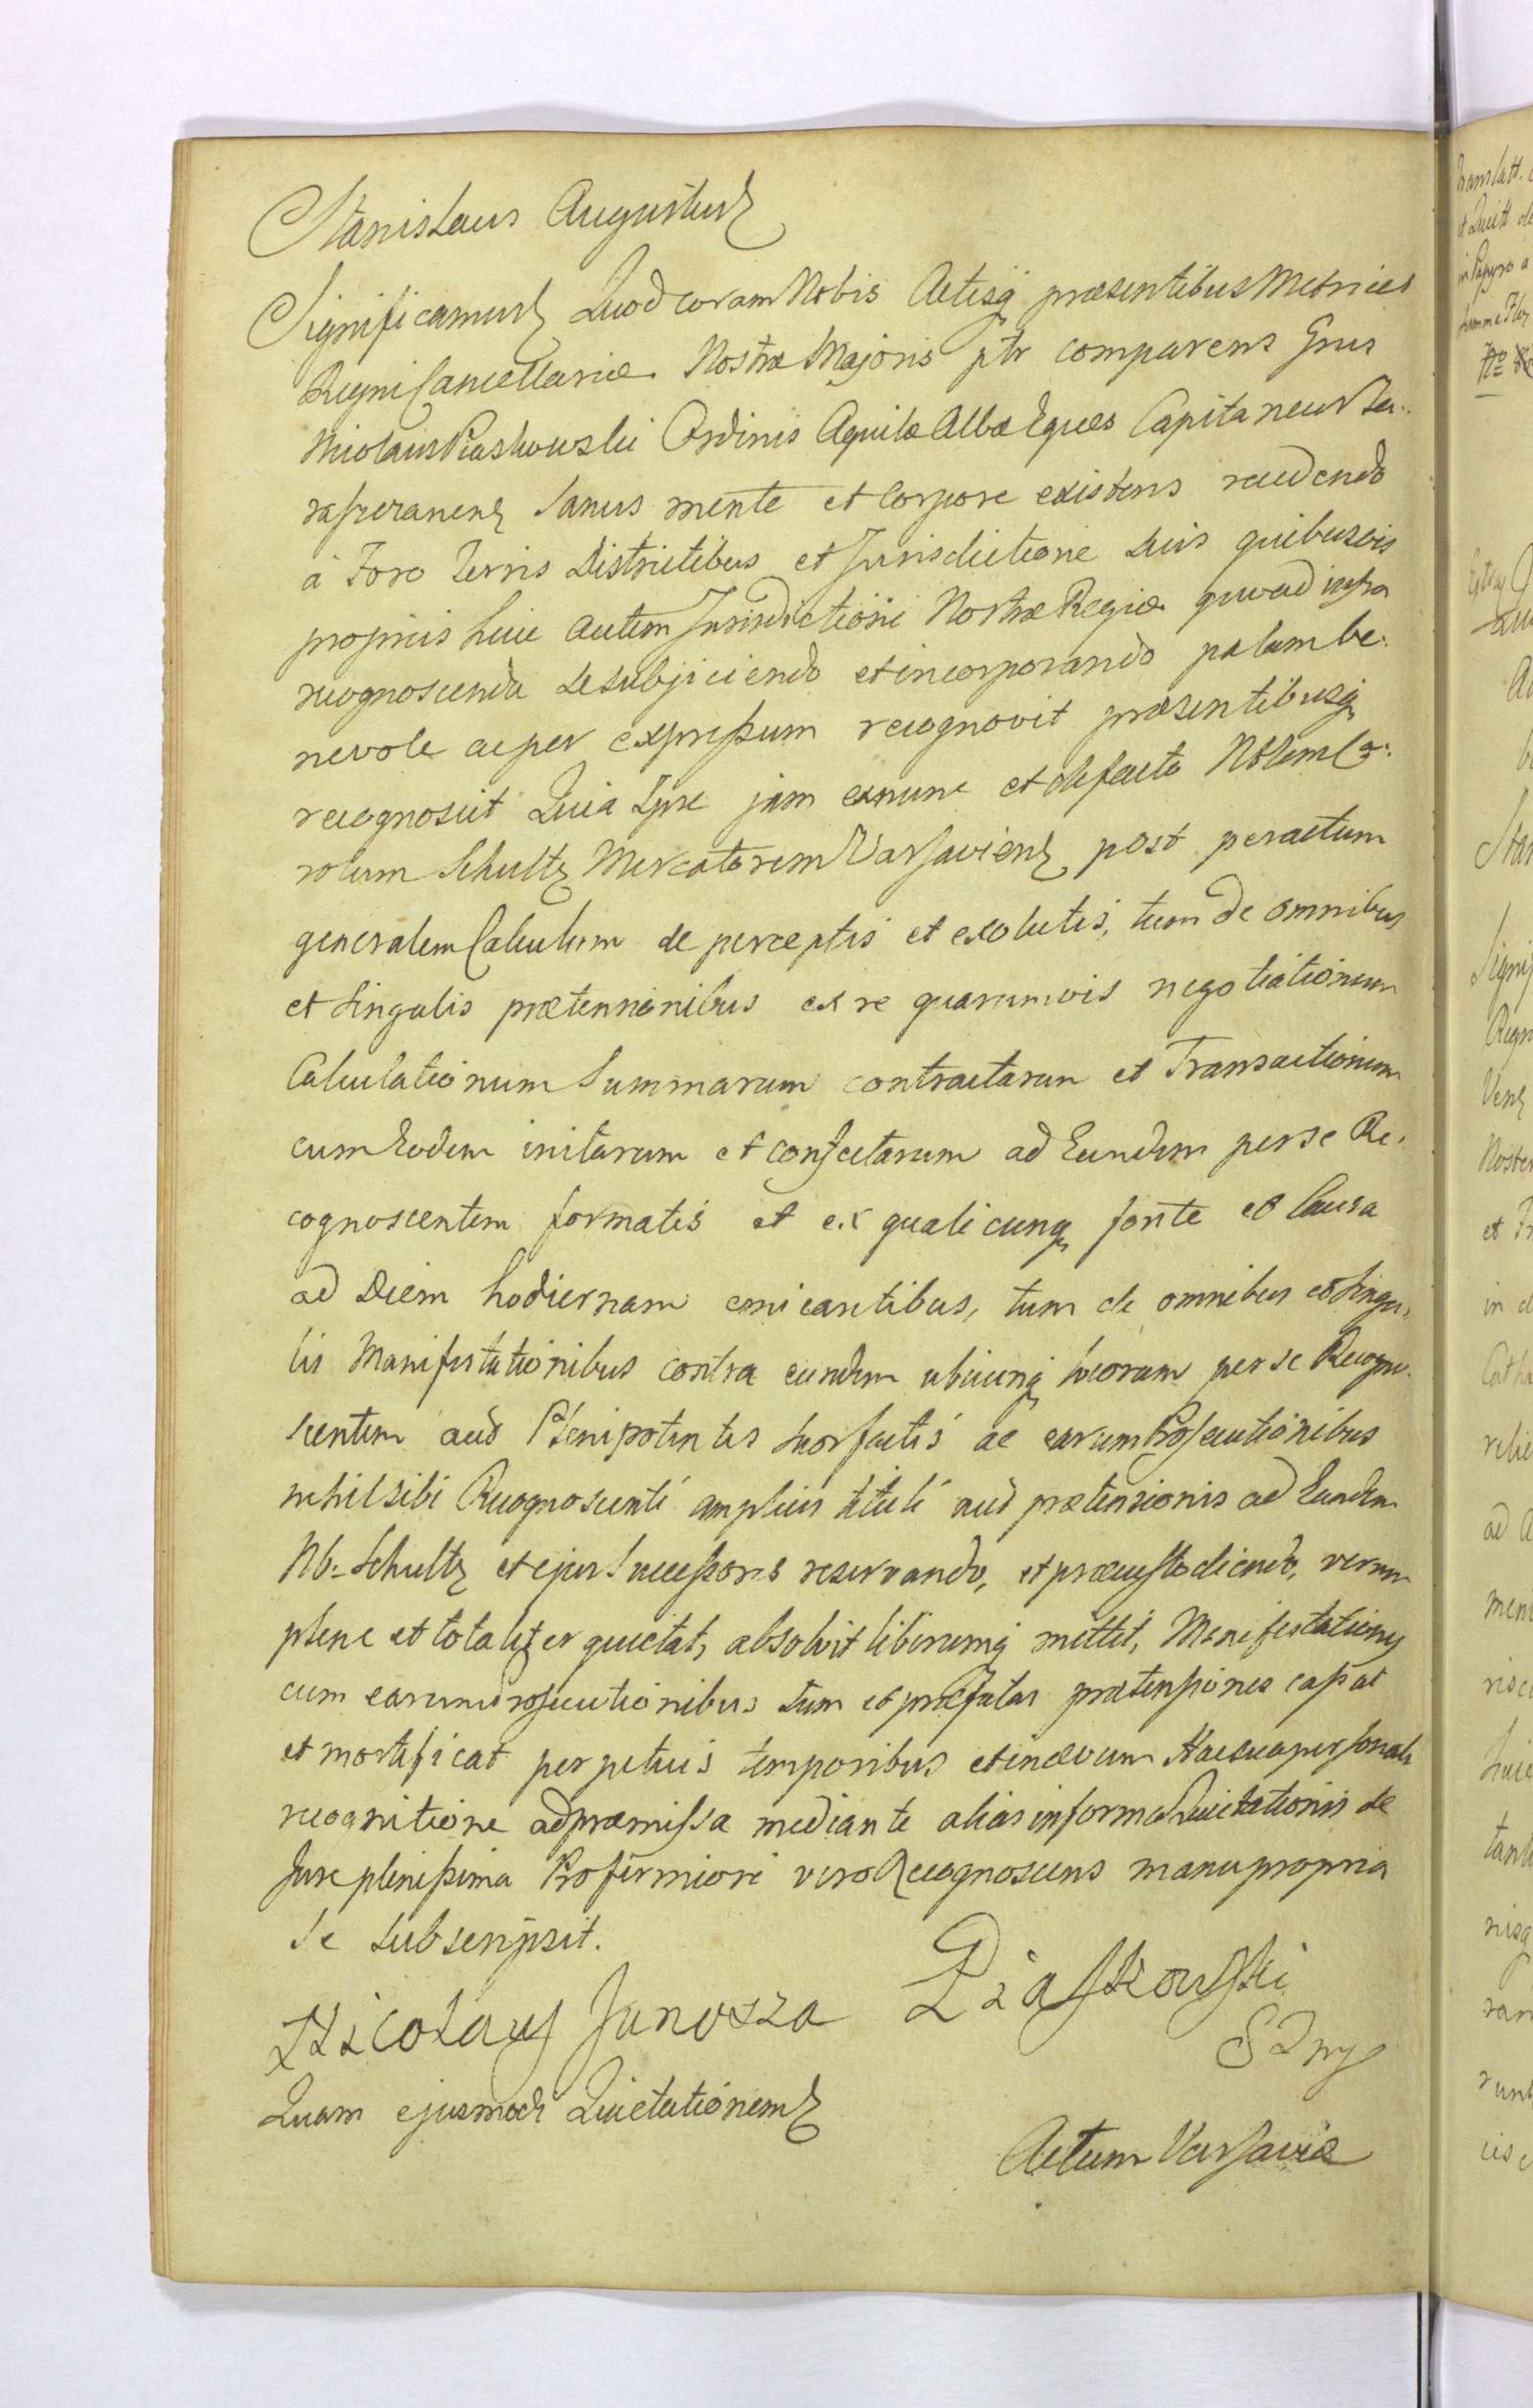 Stanislaus Augustus
Significamus Quod coram Nobis Actisq præsentibus Metrices
Regni Cancellariæ Nostræ Majoris ptr comparens Gnus
Nicolaus Piaskowski Ordinis Aquilæ Albæ Eques Capitaneus
sanus mente et Corpore existens recedendo
à Foro Terris Districtibus et Jurisdictione suis quibusvis
propriis huic autem Jurisdictioni Nostræ Regiæ quoad infra
recognoscenda se subjiciendo et incorporando palam be-
nevole ac per expressum recognovit præsentibusq
recognoscit Quia Ipse jam exnunc et defacto Nblem Ca-
rolum Schultz Mercatorem Varsaviens post peractum
generalem Calculum de perceptis et exolutis, tum de omnibus
et singulis prætensionibus ex re quarumvis negotiationum
Calculationum Summarum contractarum et Transactionum
cum Eodem initarum et confectarum ad Eundem per se Re-
cognoscentem formatis et ex qualicunq fonte et Causa
ad Diem hodiernam emicantibus, tum de omnibus et Singu-
lis Manifestationibus contra eundem ubicunq locorum per se Recogno-
scentem aut Plenipotentes suos factis ac earum Prosecutionibus
nihil sibi Recognoscenti amplius tituli aut prætensionis ad Eundem
Nb. Schultz et ejus Successores reservando, et præcustodiendo, verum
plene et totaliter quietat, absolvit liberumq mittit, Manifestationes
cum earum prosecutionibus tum et præfatas prætensiones cassat
et mortificat perpetuis temporibus et in ævum Hac sua personali
recognitione ad præmissa mediante alias in forma Quietationis de
Jure plenissima Pro firmiori vero Recognoscens manu propria
se subscripsit.
Nicolaus Junosza Piaskowski
Quam ejusmodi Quietationem
Actum Varsaviæ